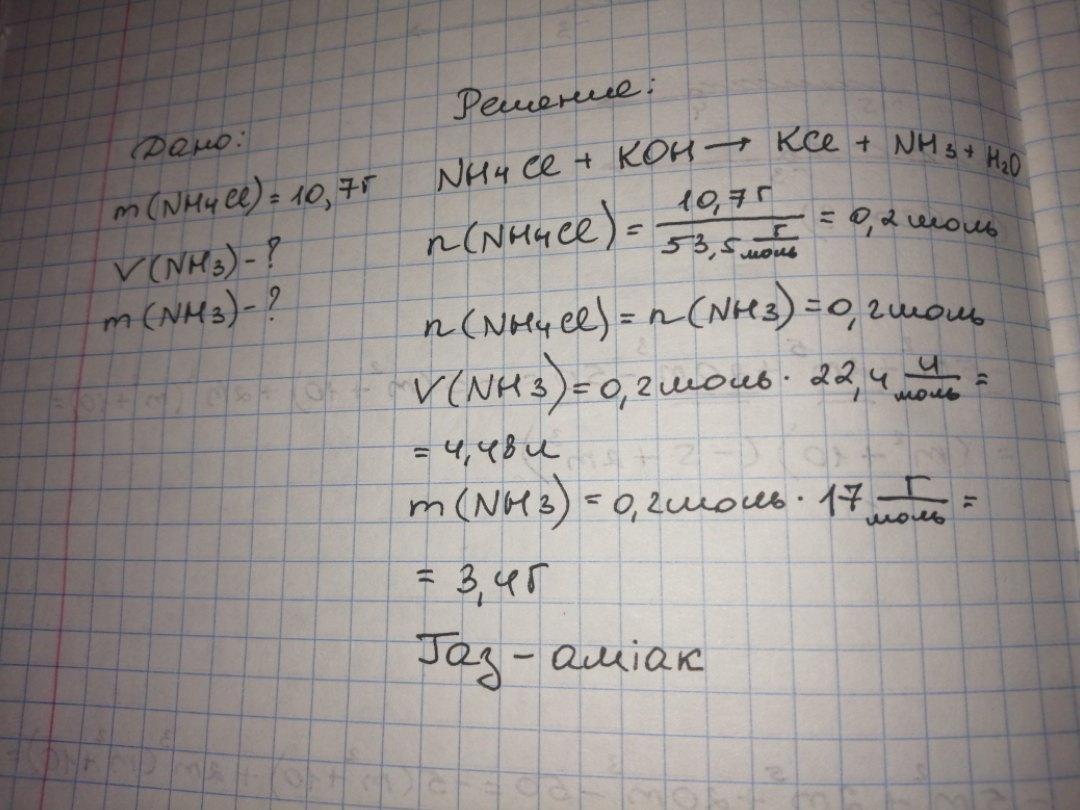 Дано:
m(NH4Cl) = 10,7г
V(NH3) - ?
m(NH3) - ?
Решение:
NH4Cl + KOH → KCl + NH3 + H2O
n(NH4Cl) = 10,7г / 53,5 г/моль = 0,2 моль
n(NH4Cl) = n(NH3) = 0,2 моль
V(NH3) = 0,2 моль · 22,4 л/моль =
= 4,48 л
m(NH3) = 0,2 моль · 17 г/моль =
= 3,4 г
Газ - аміак